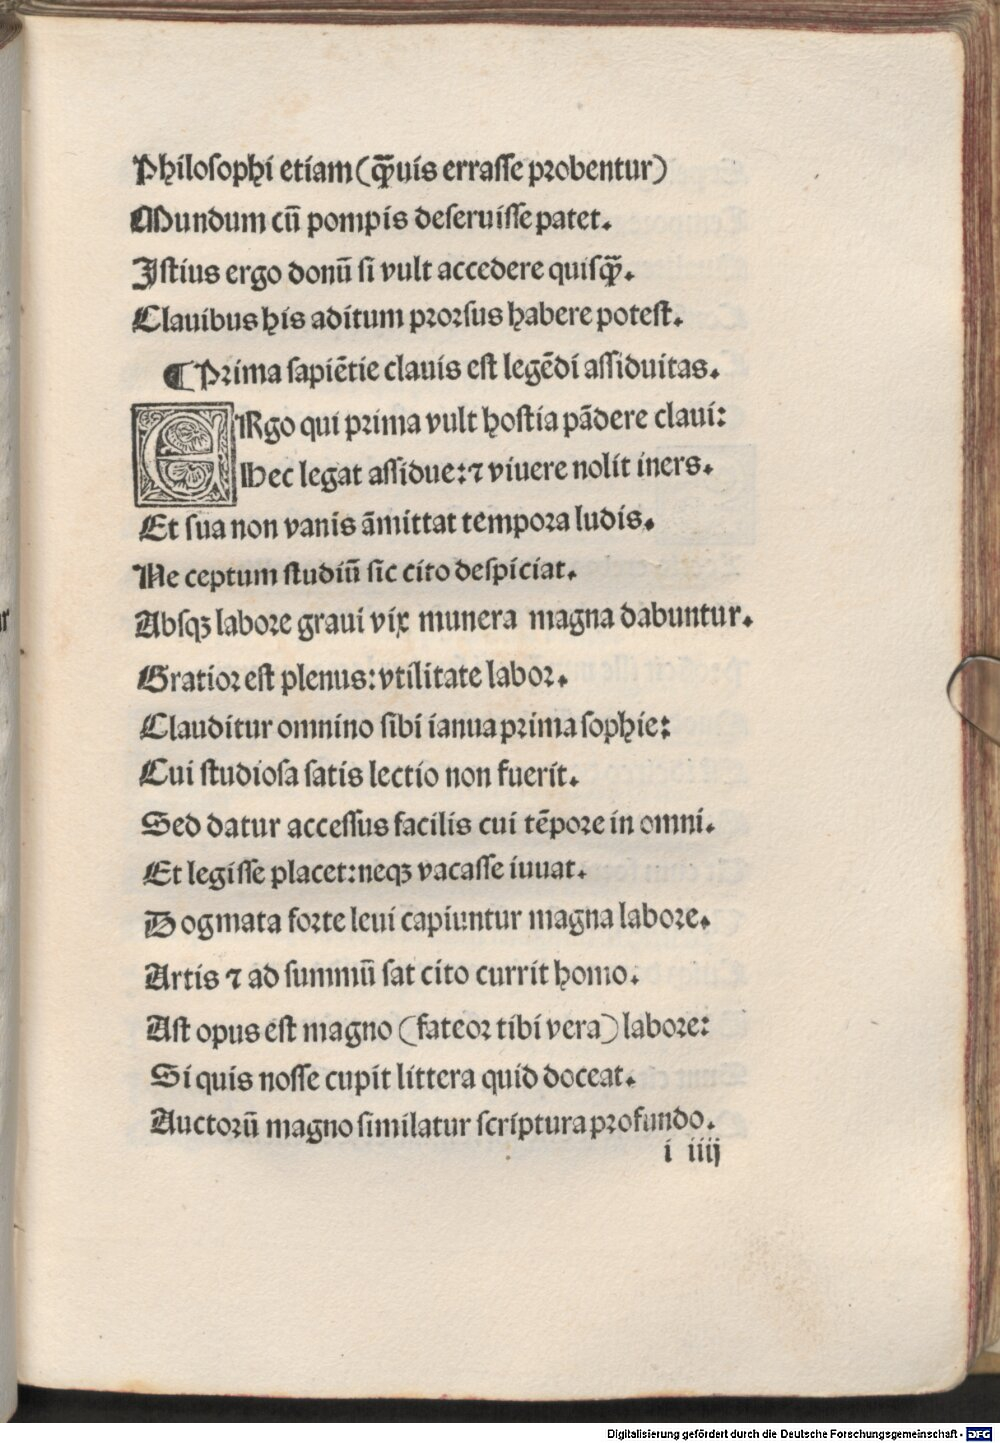 Philosophi etiam (q̄uis errasse probentur)
Mundum cū pompis deseruisse patet.
Istius ergo donū si vult accedere quisq̄.
Clauibus his aditum prorsus habere potest.
¶ Prima sapiētie clauis est legēdi assiduitas.
ERgo qui prima vult hostia pādere claui:
Hec legat assidue: ⁊ viuere nolit iners.
Et sua non vanis āmittat tempora ludis.
Ne ceptum studiū sic cito despiciat.
Absqꝫ labore graui vix munera magna dabuntur.
Gratior est plenus: vtilitate labor.
Clauditur omnino sibi ianua prima sophie:
Cui studiosa satis lectio non fuerit.
Sed datur accessus facilis cui tēpore in omni.
Et legisse placet: neqꝫ vacasse iuuat.
Dogmata forte leui capiuntur magna labore.
Artis ⁊ ad summū sat cito currit homo.
Ast opus est magno (fateor tibi vera) labore:
Si quis nosse cupit littera quid doceat.
Auctorū magno similatur scriptura profundo.
i iiij
Digitalisierung gefördert durch die Deutsche Forschungsgemeinschaft - DFG